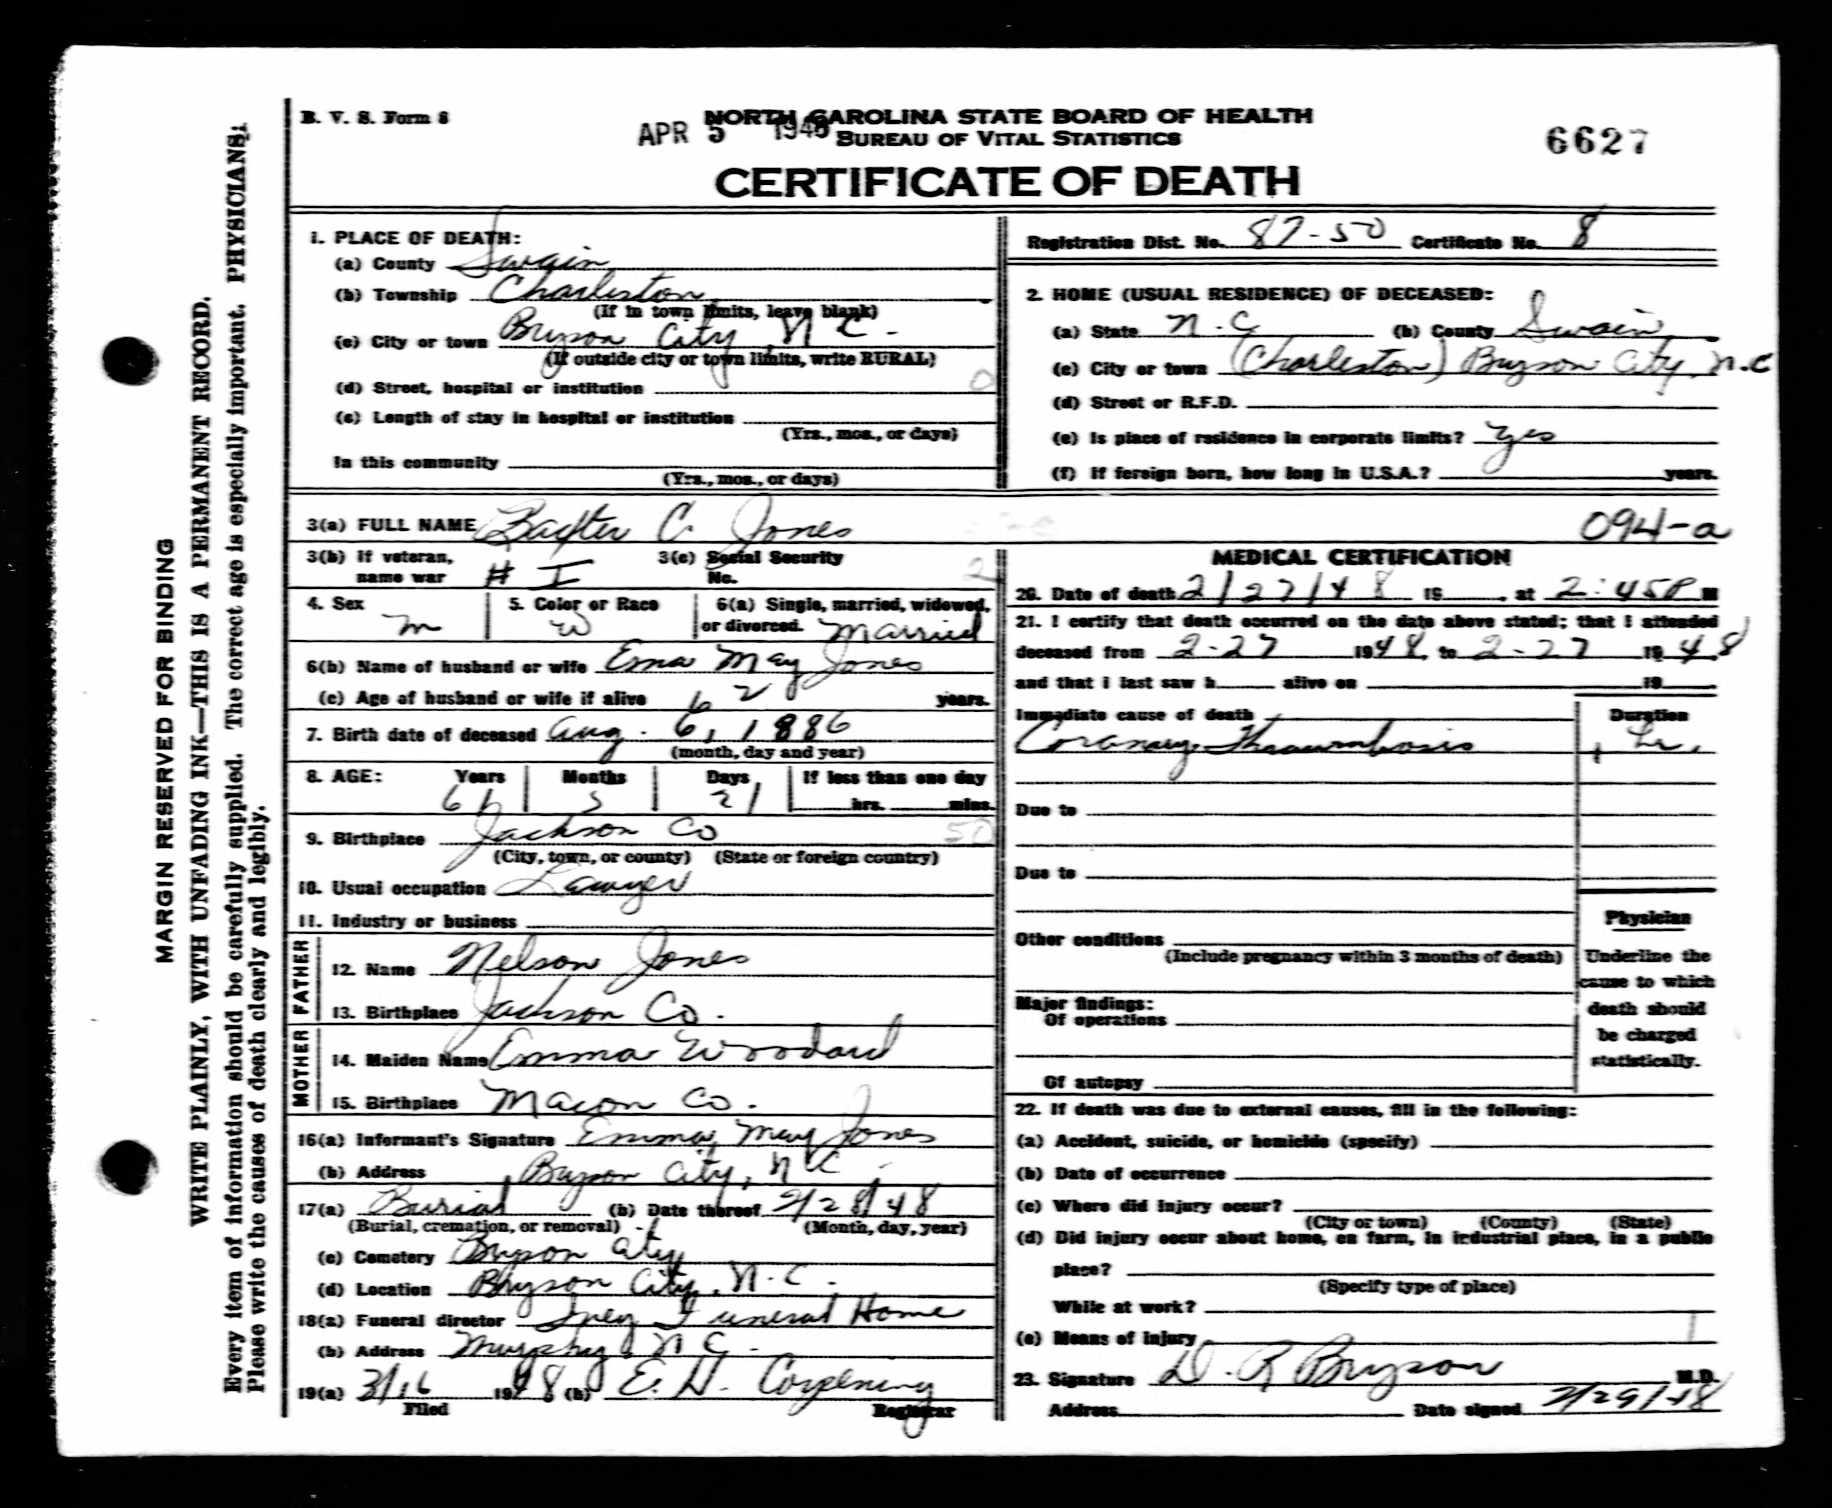 B. V. S. Form 8
NORTH CAROLINA STATE BOARD OF HEALTH
APR 5 1948 BUREAU OF VITAL STATISTICS
6627
CERTIFICATE OF DEATH
MARGIN RESERVED FOR BINDING
WRITE PLAINLY, WITH UNFADING INK—THIS IS A PERMANENT RECORD.
Every item of information should be carefully supplied. The correct age is especially important. PHYSICIANS:
Please write the causes of death clearly and legibly.
1. PLACE OF DEATH:
(a) County Swain
(b) Township Charleston
(If in town limits, leave blank)
(c) City or town Bryson City, N C.
(If outside city or town limits, write RURAL)
(d) Street, hospital or institution
(e) Length of stay in hospital or institution
(Yrs., mos., or days)
In this community
(Yrs., mos., or days)
Registration Dist. No. 87-50 Certificate No. 8
2. HOME (USUAL RESIDENCE) OF DECEASED:
(a) State N.C (b) County Swain
(c) City or town (Charleston) Bryson City, N.C
(d) Street or R.F.D.
(e) Is place of residence in corporate limits? Yes
(f) If foreign born, how long in U.S.A.? years.
3(a) FULL NAME Baxter C. Jones
094-a
3(b) If veteran, name war # I 3(c) Social Security No.
2
4. Sex M
5. Color or Race W
6(a) Single, married, widowed, or divorced. Married
6(b) Name of husband or wife Ema May Jones
(c) Age of husband or wife if alive 62 years.
7. Birth date of deceased Aug. 6, 1886
(month, day and year)
8. AGE: Years Months Days If less than one day
61 21 hrs. mins.
9. Birthplace Jackson Co 50
(City, town, or county) (State or foreign country)
10. Usual occupation Lawyer
11. Industry or business
FATHER
12. Name Nelson Jones
13. Birthplace Jackson Co.
MOTHER
14. Maiden Name Emma Woodard
15. Birthplace Macon Co.
16(a) Informant's Signature Emma May Jones
(b) Address Bryson City, N C.
17(a) Burial (b) Date thereof 2/28/48
(Burial, cremation, or removal) (Month, day, year)
(c) Cemetery Bryson City
(d) Location Bryson City, N.C.
18(a) Funeral director Ivey Funeral Home
(b) Address Murphy, N C.
19(a) 3/16 1948 (b) E. H. Corpening
Filed Registrar
MEDICAL CERTIFICATION
20. Date of death 2/27/48 19 , at 2:45 P M
21. I certify that death occurred on the date above stated; that I attended
deceased from 2-27 1948, to 2-27 1948
and that I last saw h alive on 19
Immediate cause of death Duration
Coronary Thrombosis 1 hr.
Due to
Due to
Other conditions
(Include pregnancy within 3 months of death)
Major findings:
Of operations
Of autopsy
Physician
Underline the
cause to which
death should
be charged
statistically.
22. If death was due to external causes, fill in the following:
(a) Accident, suicide, or homicide (specify)
(b) Date of occurrence
(c) Where did injury occur?
(City or town) (County) (State)
(d) Did injury occur about home, on farm, in industrial place, in a public
place?
(Specify type of place)
While at work?
(e) Means of injury
23. Signature D. R Bryson M.D.
Address Date signed 2/29/48